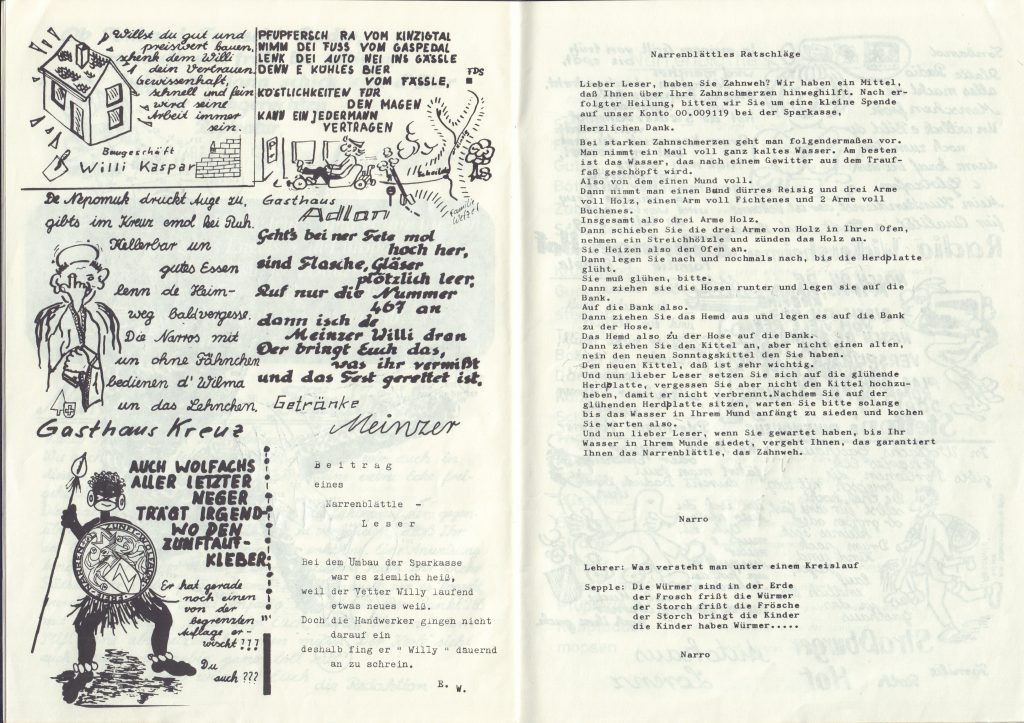 Willst du gut und
preiswert bauen,
schenk dem Willi
dein Vertrauen.
Gewissenhaft,
schnell und fein
wird seine
Arbeit immer
sein.
Baugeschäft
Willi Kaspar
PFUPFERSCH RA VOM KINZIGTAL
NIMM DEI FUSS VOM GASPEDAL
LENK DEI AUTO NEI INS GÄSSLE
DENN E KÜHLES BIER
VOM FÄSSLE,
KÖSTLICHKEITEN FÜR
DEN MAGEN
KANN EIN JEDERMANN
VERTRAGEN
FDS
Gasthaus
Adler
De Nepomuk druckt Auge zu,
gibts im Kreuz emol bei Ruh.
Kellerbar un
gutes Essen
lenn de Heim-
weg bald vergesse.
Die Narros mit
un ohne Fähnchen
bedienen d' Wilma
un das Lehnchen.
Gasthaus Kreuz
Geht's bei ner Fete mol
hoch her,
sind Flasche, Gläser
plötzlich leer,
Ruf nur die Nummer
467 an
dann isch de
Meinzer Willi dran
Der bringt Euch das,
was ihr vermißt
und das Fest gerettet ist.
Getränke
Meinzer
AUCH WOLFACHS
ALLER LETZTER
NEGER
TRÄGT IRGEND-
WO DEN
ZUNFTAUF-
KLEBER!
Er hat gerade
noch einen
von der
begrenzten
Auflage er-
wischt???
Du
auch ???
Beitrag
eines
Narrenblättle -
Leser
Bei dem Umbau der Sparkasse
war es ziemlich heiß,
weil der Vetter Willy laufend
etwas neues weiß.
Doch die Handwerker gingen nicht
darauf ein
deshalb fing er " Willy " dauernd
an zu schrein.
E. W.
Narrenblättles Ratschläge
Lieber Leser, haben Sie Zahnweh? Wir haben ein Mittel,
daß Ihnen über Ihre Zahnschmerzen hinweghilft. Nach er-
folgter Heilung, bitten wir Sie um eine kleine Spende
auf unser Konto 00.009119 bei der Sparkasse,
Herzlichen Dank.
Bei starken Zahnschmerzen geht man folgendermaßen vor.
Man nimmt ein Maul voll ganz kaltes Wasser, Am besten
ist das Wasser, das nach einem Gewitter aus dem Trauf-
faß geschöpft wird.
Also von dem einen Mund voll.
Dann nimmt man einen Bund dürres Reisig und drei Arme
voll Holz, einen Arm voll Fichtenes und 2 Arme voll
Buchenes.
Insgesamt also drei Arme Holz.
Dann schieben Sie die drei Arme von Holz in Ihren Ofen,
nehmen ein Streichhölzle und zünden das Holz an.
Sie Heizen also den Ofen an.
Dann legen Sie nach und nochmals nach, bis die Herdplatte
glüht.
Sie muß glühen, bitte.
Dann ziehen sie die Hosen runter und legen sie auf die
Bank.
Auf die Bank also.
Dann ziehen Sie das Hemd aus und legen es auf die Bank
zu der Hose.
Das Hemd also zu der Hose auf die Bank.
Dann ziehen Sie den Kittel an, aber nicht einen alten,
nein den neuen Sonntagskittel den Sie haben.
Den neuen Kittel, daß ist sehr wichtig.
Und nun lieber Leser setzen Sie sich auf die glühende
Herdplatte, vergessen Sie aber nicht den Kittel hochzu-
heben, damit er nicht verbrennt.Nachdem Sie auf der
glühenden Herdplatte sitzen, warten Sie bitte solange
bis das Wasser in Ihrem Mund anfängt zu sieden und kochen
Sie warten also.
Und nun lieber Leser, wenn Sie gewartet haben, bis Ihr
Wasser in Ihrem Munde siedet, vergeht Ihnen, das garantiert
Ihnen das Narrenblättle, das Zahnweh.
Narro
Lehrer: Was versteht man unter einem Kreislauf
Sepple: Die Würmer sind in der Erde
der Frosch frißt die Würmer
der Storch frißt die Frösche
der Storch bringt die Kinder
die Kinder haben Würmer.....
Narro